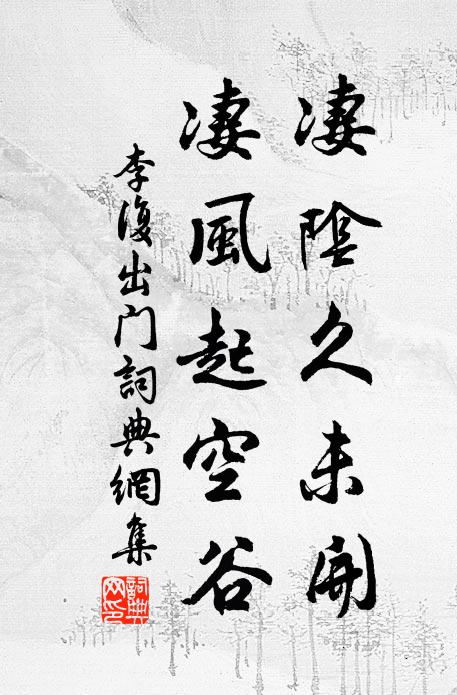 凄陰久未開
凄風起空谷
李復出门詞典網集
詞典网印